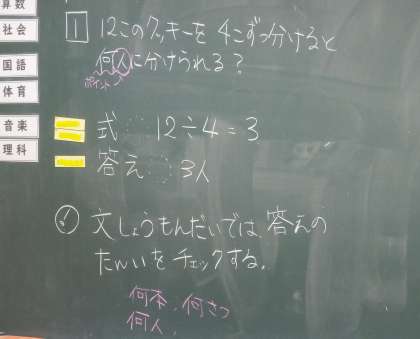 算数
社会
国語
体育
音楽
理科
1 12このクッキーを4こずつ分けると
何人に分けられる？
ポイント
式 12÷4=3
答え 3人
! 文しょうもんだいでは、答えの
たんいをチェックする。
何本、何さつ
何人、